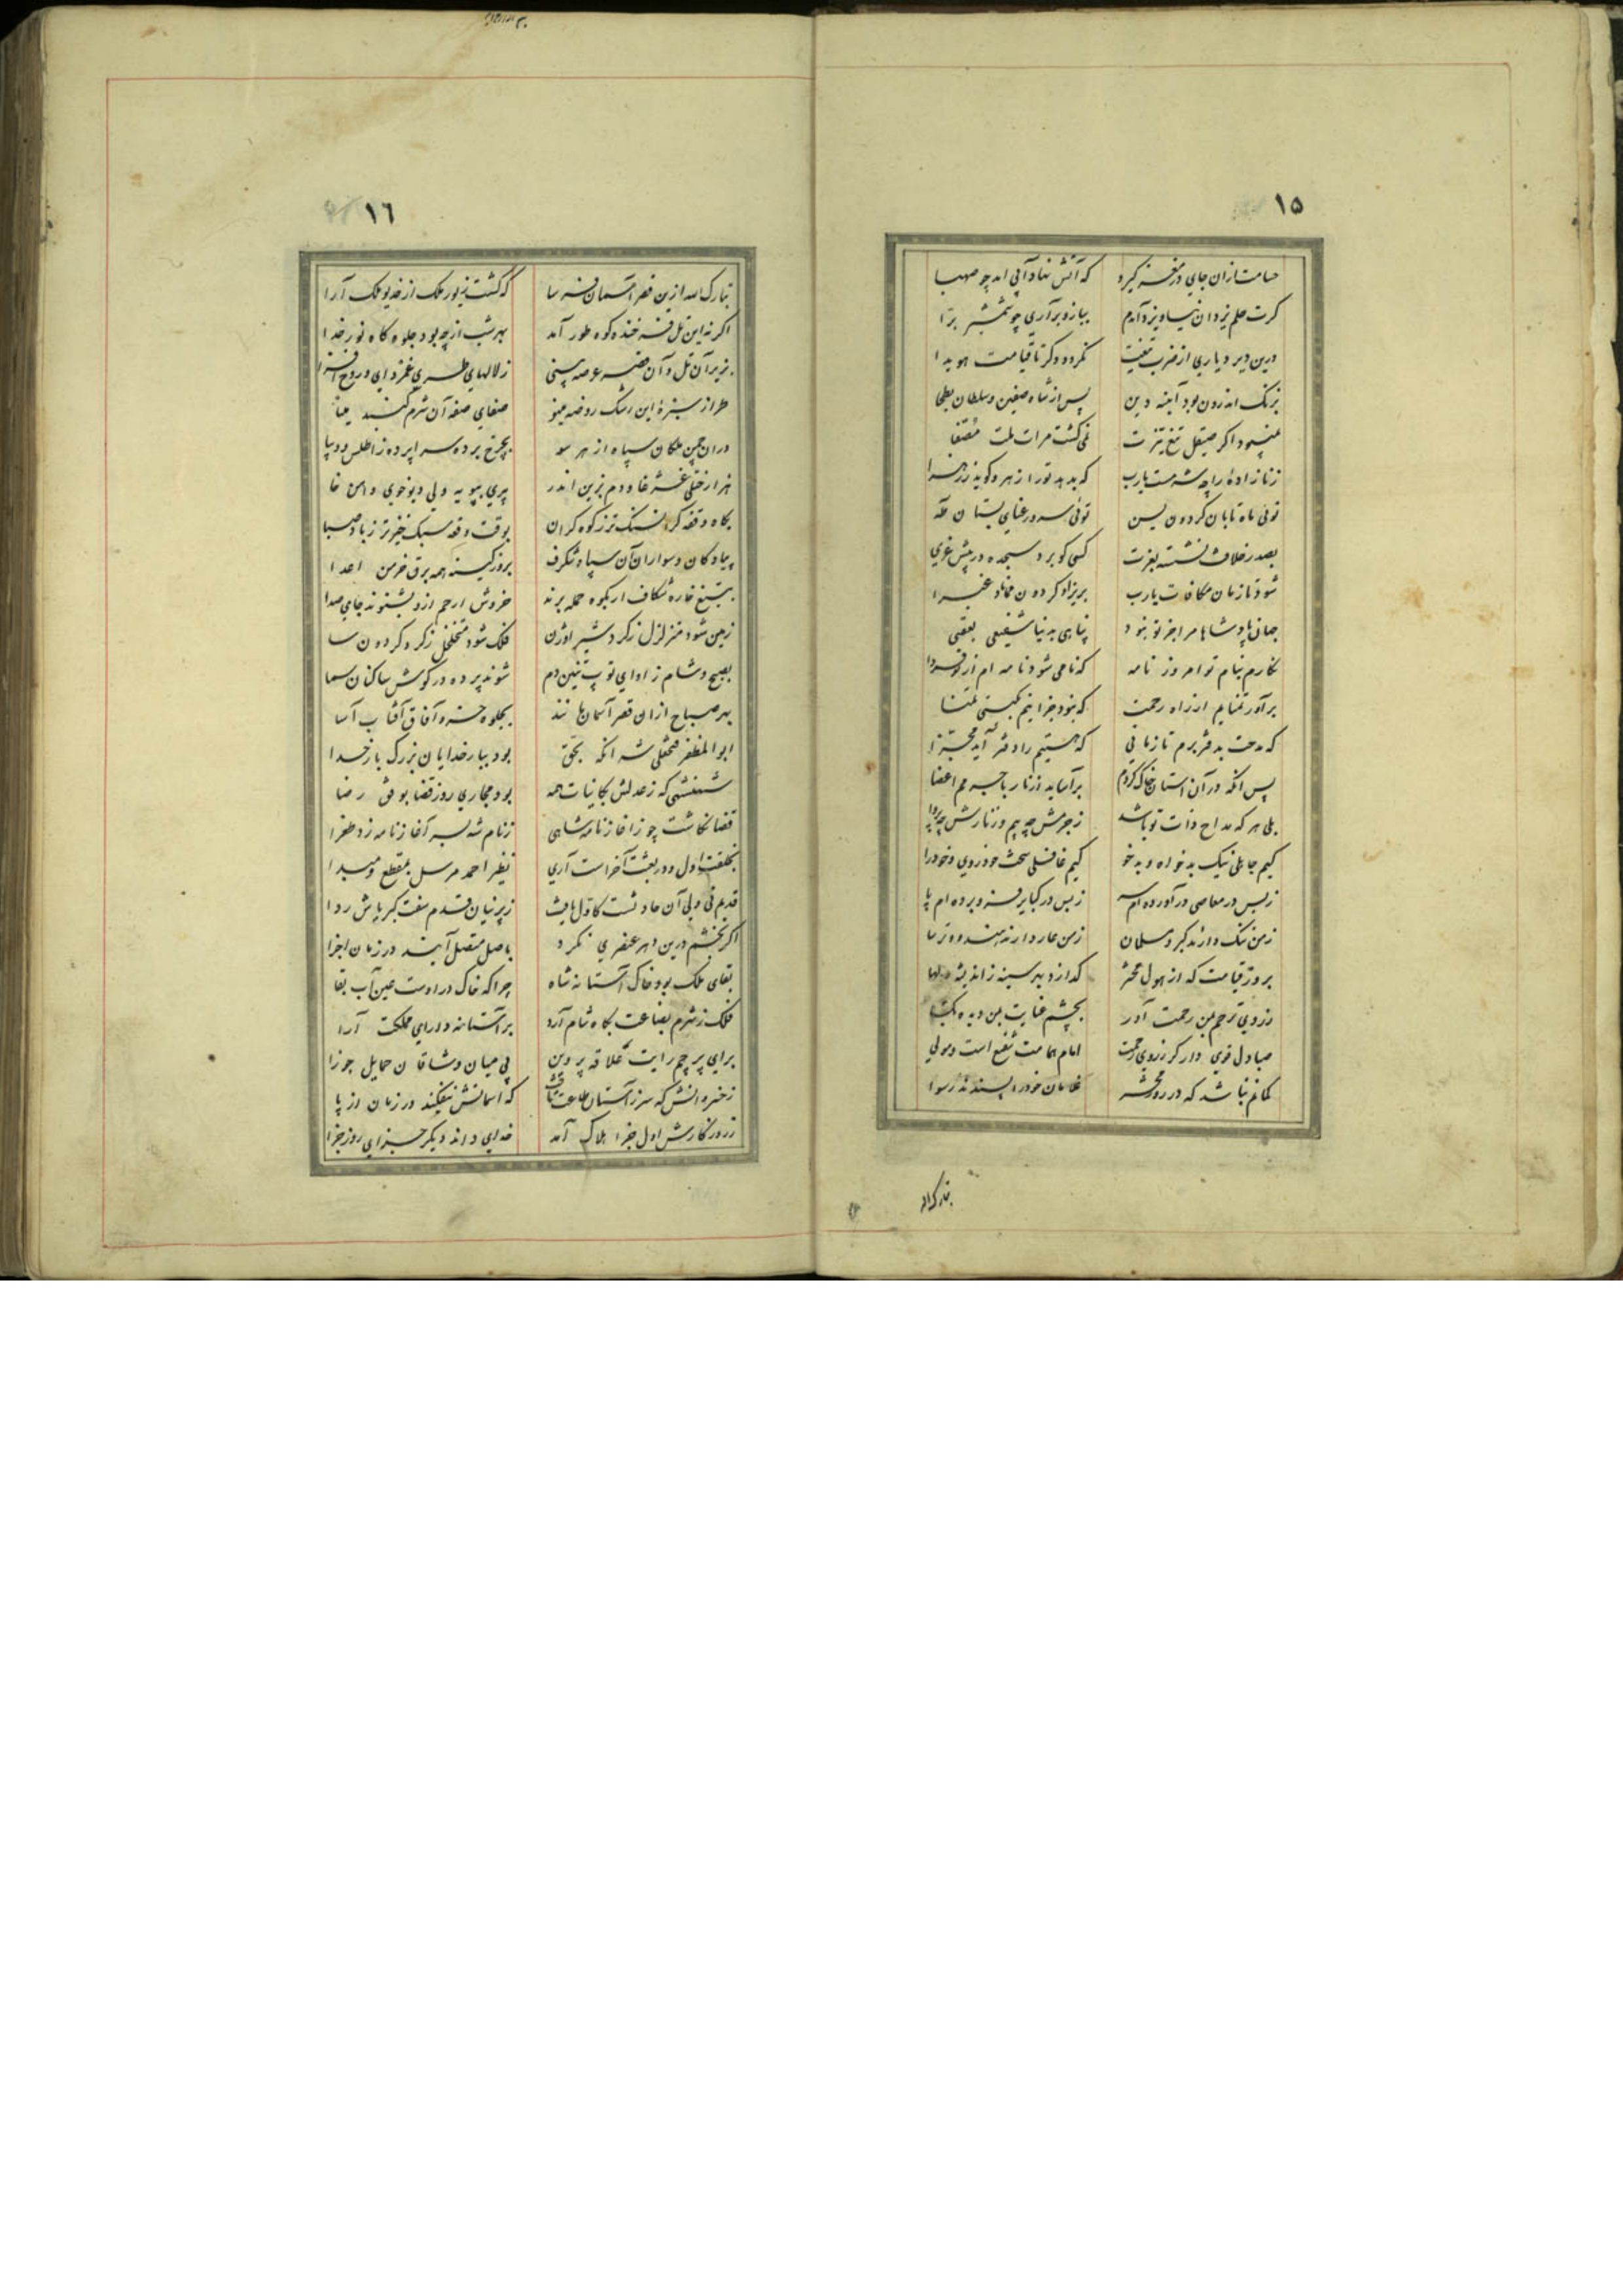 ۱۵
حسامت ازان جای در مغز گیرد که آتش نهاد آبی آمد چو صهبا
کرت حلم یزدان نیاورد آندم ببازو برآری چو شمشیر برا
درین دیر دیاری از ضرب تیغت نکردد دکر تا قیامت هویدا
بزنک اندرون بود آینه دین پس از شاه صفین و سلطان بطحا
نمیبود اکر صیقل تیغ تیزت نمی کشت مرات ملت مصفا
زنا زاده را چه شرمست یارب که بدهد تو را زهر و کوید ز زهرا
توئی ماه تابان کردون یسن توئی سرو رعنای بستان طه
بصدر خلافت نشسته بعزت کسی کو برد سجده در پیش عزی
شود تا زمان مکافات یارب بریزاد کردون نماناد غبرا
جهان پادشاها مرا جز تو نبود پناهی بدنیا شفیعی بعقبی
نکارم بنام تو امروز نامه که نامی شود نامه ام از تو فردا
برآور تمنایم از راه رحمت که نبود جز اینم بکیتی تمنا
که مدحت بدفتر برم تا زمانی که هستیم را دفتر آید مجزا
پس آنکه در آن آستان خاک کردم برآساید از نار با جسمم اعضا
بلی هر که مداح ذات تو باشد ز جرمش چه بیم و ز نارش چه پروا
کیم جاهلی نیک بدخواه و بدخو کیم غافلی سخت خودروی و خودرا
ز بس در معاصی درآورده ام سر ز بس در کبایر فرو برده ام پا
ز من ننک دارند کبر و مسلمان ز من عار دارند هندو و ترسا
بروز قیامت که از هول محشر کدازد بهر سینه ز اندیشه دلها
ز روی ترحم بمن رحمت آور بچشم عنایت بمن دیده بکشا
صبا دل قوی دار کز روی رحمت امام همامت شفیع است و مولی
کمانم نباشد که در روز محشر غلامان خود را پسندند رسوا
تبارک الله
۱٦
تبارک الله ازین قصر آسمان فرسا که کشت زیور ملک از خدیو ملک آرا
اکر نه این تل فرخنده کوه طور آمد بهر شب از چه بود جلوه کاه نور خدا
بزیر آن تل و آن قصر عرصه بینی ز لالهای طری غمزدای و روح افزا
طراز سبزه این رشک روضه مینو صفای صفه آن شرم کنبد مینا
در آن چمن ملکان سپاه از هر سو بچرخ برده سراپرده ز اطلس و دیبا
هزار ختلی غژغا و دم بزین اندر پری بپویه ولی دیوخوی و اهن خا
بکاه وقفه کران سنک تر ز کوه کران بوقت وقعه سبک خیزتر ز باد صبا
پیادکان و سواران آن سپاه شکرف بروز کینه همه برق خرمن اعدا
بتیغ خاره شکاف ار بکوه حمله برند خروش ارحم ازو بشنوند جای صدا
زمین شود متزلزل ز کرد شیر اوژن فلک شود متخلخل ز کرد کردون سا
بصبح و شام ز اوای توپ تنین دم شوند پرده در کوش ساکنان سما
بهر صباح ازان قصر آسمان مانند بجلوه خسرو آفاق آفتاب آسا
ابوالمظفر فتحعلی شه آنکه بحق بود ببار خدایان بزرک بار خدا
شهنشهی که ز عدلش بکاینات همه بود مجاری روز قضا بوفق رضا
قضا نکاشت چو ز اغاز نامه شاهی ز نام شه بسر آغاز نامه زد طغرا
بخلقت اول و در بعثت آخر است آری نظیر احمد مرسل بمقطع و مبدا
قدیم نی ولی آن حادثست کاول بافت ز پرنیان قدم سفت کبریاش ردا
اکر بخشم درین دهر عنصری نکرد باصل متصل آیند در زمان اجزا
بقای ملک بود خاک آستانه شاه چرا که خاک در اوست عین آب بقا
فلک ز شرم بضاعت بکاه شام آرد بر آستانه دارای مملکت آرا
برای پرچم رایت علاقه پروین پی میان وشاقان حمایل جوزا
که اسمانش نیفکند در زمان از پا
ز روزکارش اول جزا هلاک آمد خدای داند دیکر جزای روز جزا